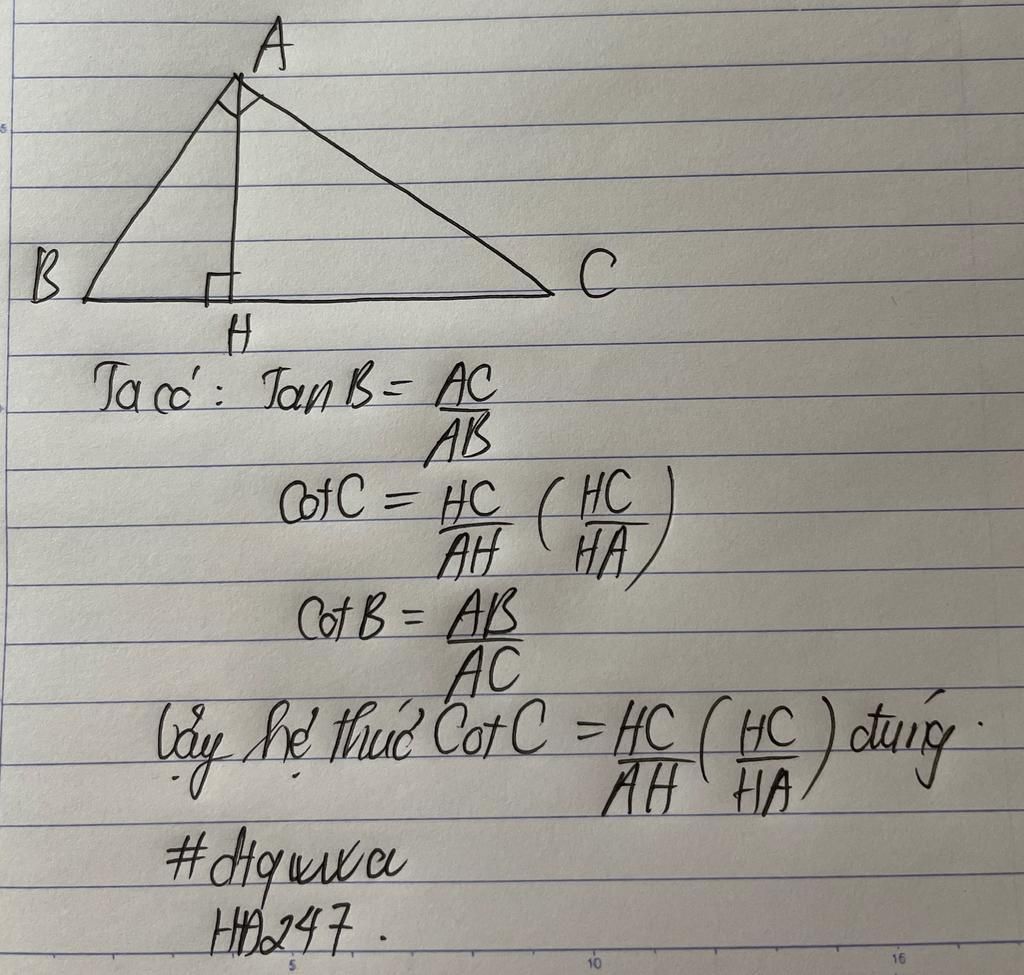 A
B
C
H
Ta có: Tan B = AC/AB
Cot C = HC/AH (HC/HA)
Cot B = AB/AC
Vậy hệ thức Cot C = HC/AH (HC/HA) đúng.
HD247.
5
10